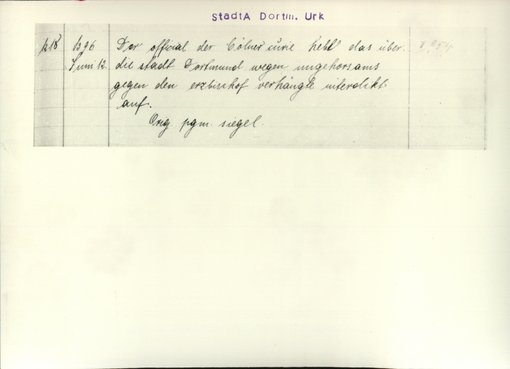 StadtA Dortm. Urk
1396 Der official der Cölner curie hebt das über
Juni 12. die stadt Dortmund wegen ungehorsams
gegen den erzbischof verhängte interdikt
auf.
Orig. pgm. siegel.